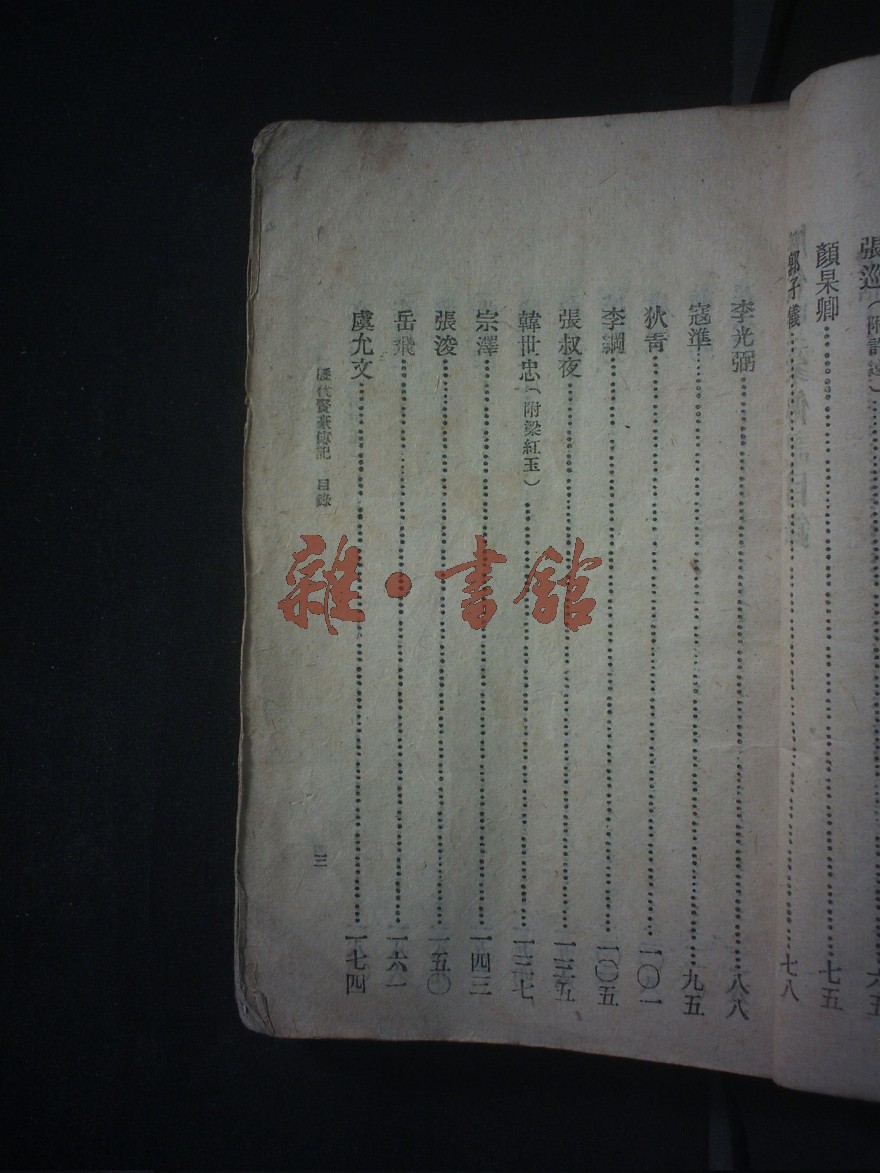 張巡（附許遠）……六五
顏杲卿……七五
郭子儀……七八
李光弼……八八
寇準……九五
狄青……一〇一
李綱……一〇五
張叔夜
韓世忠（附梁紅玉）
宗澤……一四三
張浚……一五〇
岳飛……一六一
虞允文……一七四
歷代賢豪傳記　目錄
三
雜·書館